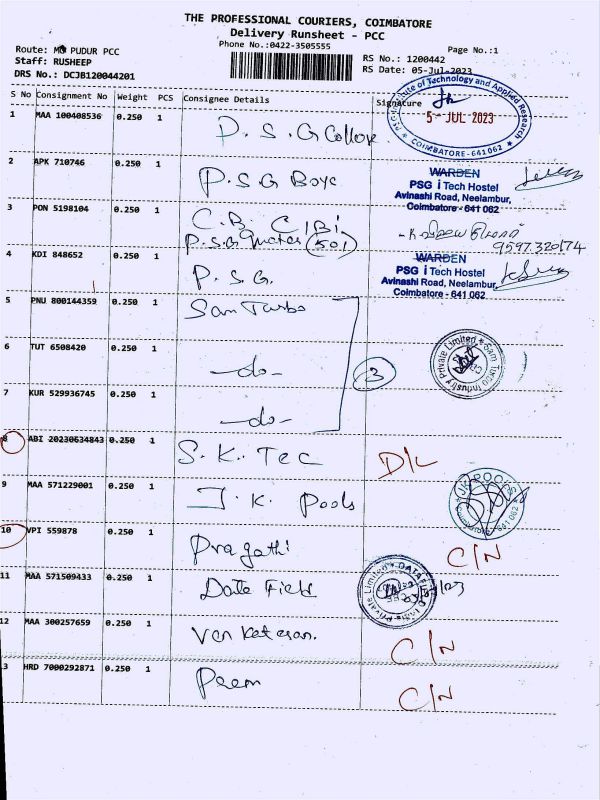 THE PROFESSIONAL COURIERS, COIMBATORE
Delivery Runsheet - PCC
Phone No.:0422-3505555
Page No.:1
Route: MG PUDUR PCC
RS No.: 1200442
Staff: RUSHEEP
RS Date: 05-Jul-2023
DRS No.: DCJB120044201
S No Consignment No Weight PCS Consignee Details Signature
Institute of Technology and Applied Research
5 - JUL 2023
COIMBATORE-641062
1 MAA 100408536 0.250 1 P.S.G College
2 APK 710746 0.250 1 P.S.G Boys
WARDEN
PSG i Tech Hostel
Avinashi Road, Neelambur,
Coimbatore - 641 062
3 PON 5198104 0.250 1 C.B. C
P.S.G (501)
9597320174
4 KDI 848652 0.250 1 P.S.G.
WARDEN
PSG i Tech Hostel
Avinashi Road, Neelambur,
Coimbatore - 641 062
5 PNU 800144359 0.250 1 Sam Turbo
6 TUT 6508420 0.250 1 -do-
3
Sam Turbo Industry Private Limited
7 KUR 529936745 0.250 1 -do-
8 ABI 20230634843 0.250 1 S.K. Tec D/L
9 MAA 571229001 0.250 1 J.K. Pools
641 062
10 VPI 559878 0.250 1 Pragathi C/N
11 MAA 571509433 0.250 1 Data Field
Private Limited
12 MAA 300257659 0.250 1 Venkatesan. C/N
3 HRD 7000292871 0.250 1 Prem C/N